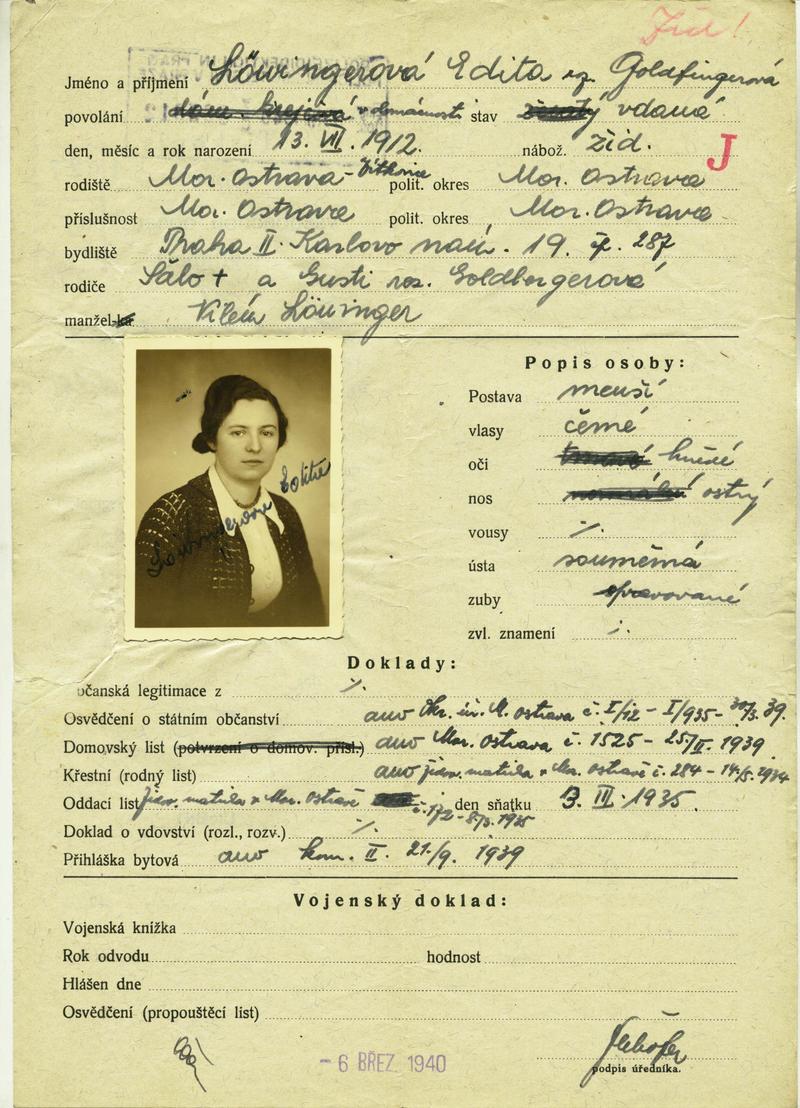 Žid!
Jméno a příjmení Löwingerová Edita roz. Goldfingerová
povolání v domácnosti stav vdaná
den, měsíc a rok narození 13. VII. 1912. nábož. žid. J
rodiště Mor. Ostrava - Vítkovice polit. okres Mor. Ostrava
příslušnost Mor. Ostrava polit. okres Mor. Ostrava
bydliště Praha II. Karlovo nám. 19. čp. 287
rodiče Sálo + a Gusti roz. Goldbergerová
manžel-ka Vilém Löwinger
Popis osoby:
Postava menší
vlasy černé
oči tmavé hnědé
nos normální ostrý
vousy ⁒
ústa souměrná
zuby opravované
zvl. znamení ⁒
Löwingerová Edita
Doklady:
občanská legitimace z ⁒
Osvědčení o státním občanství ano Okr. úř. M. Ostrava č. I/12 - I/935 - 39.
Domovský list (potvrzení o domov. přísl.) ano Mor. Ostrava č. 1525 - 25/II. 1939
Křestní (rodný list) ano židov. matrika v Mor. Ostravě č. 284 - 14/5. 1934
Oddací list židov. matrika v Mor. Ostravě den sňatku 3. III. 1935
č. 172 - 8/3. 1935
Doklad o vdovství (rozl., rozv.) ⁒
Přihláška bytová ano kom. II. 21./9. 1939
Vojenský doklad:
Vojenská knížka
Rok odvodu hodnost
Hlášen dne
Osvědčení (propouštěcí list)
- 6 BŘEZ. 1940
podpis úředníka.